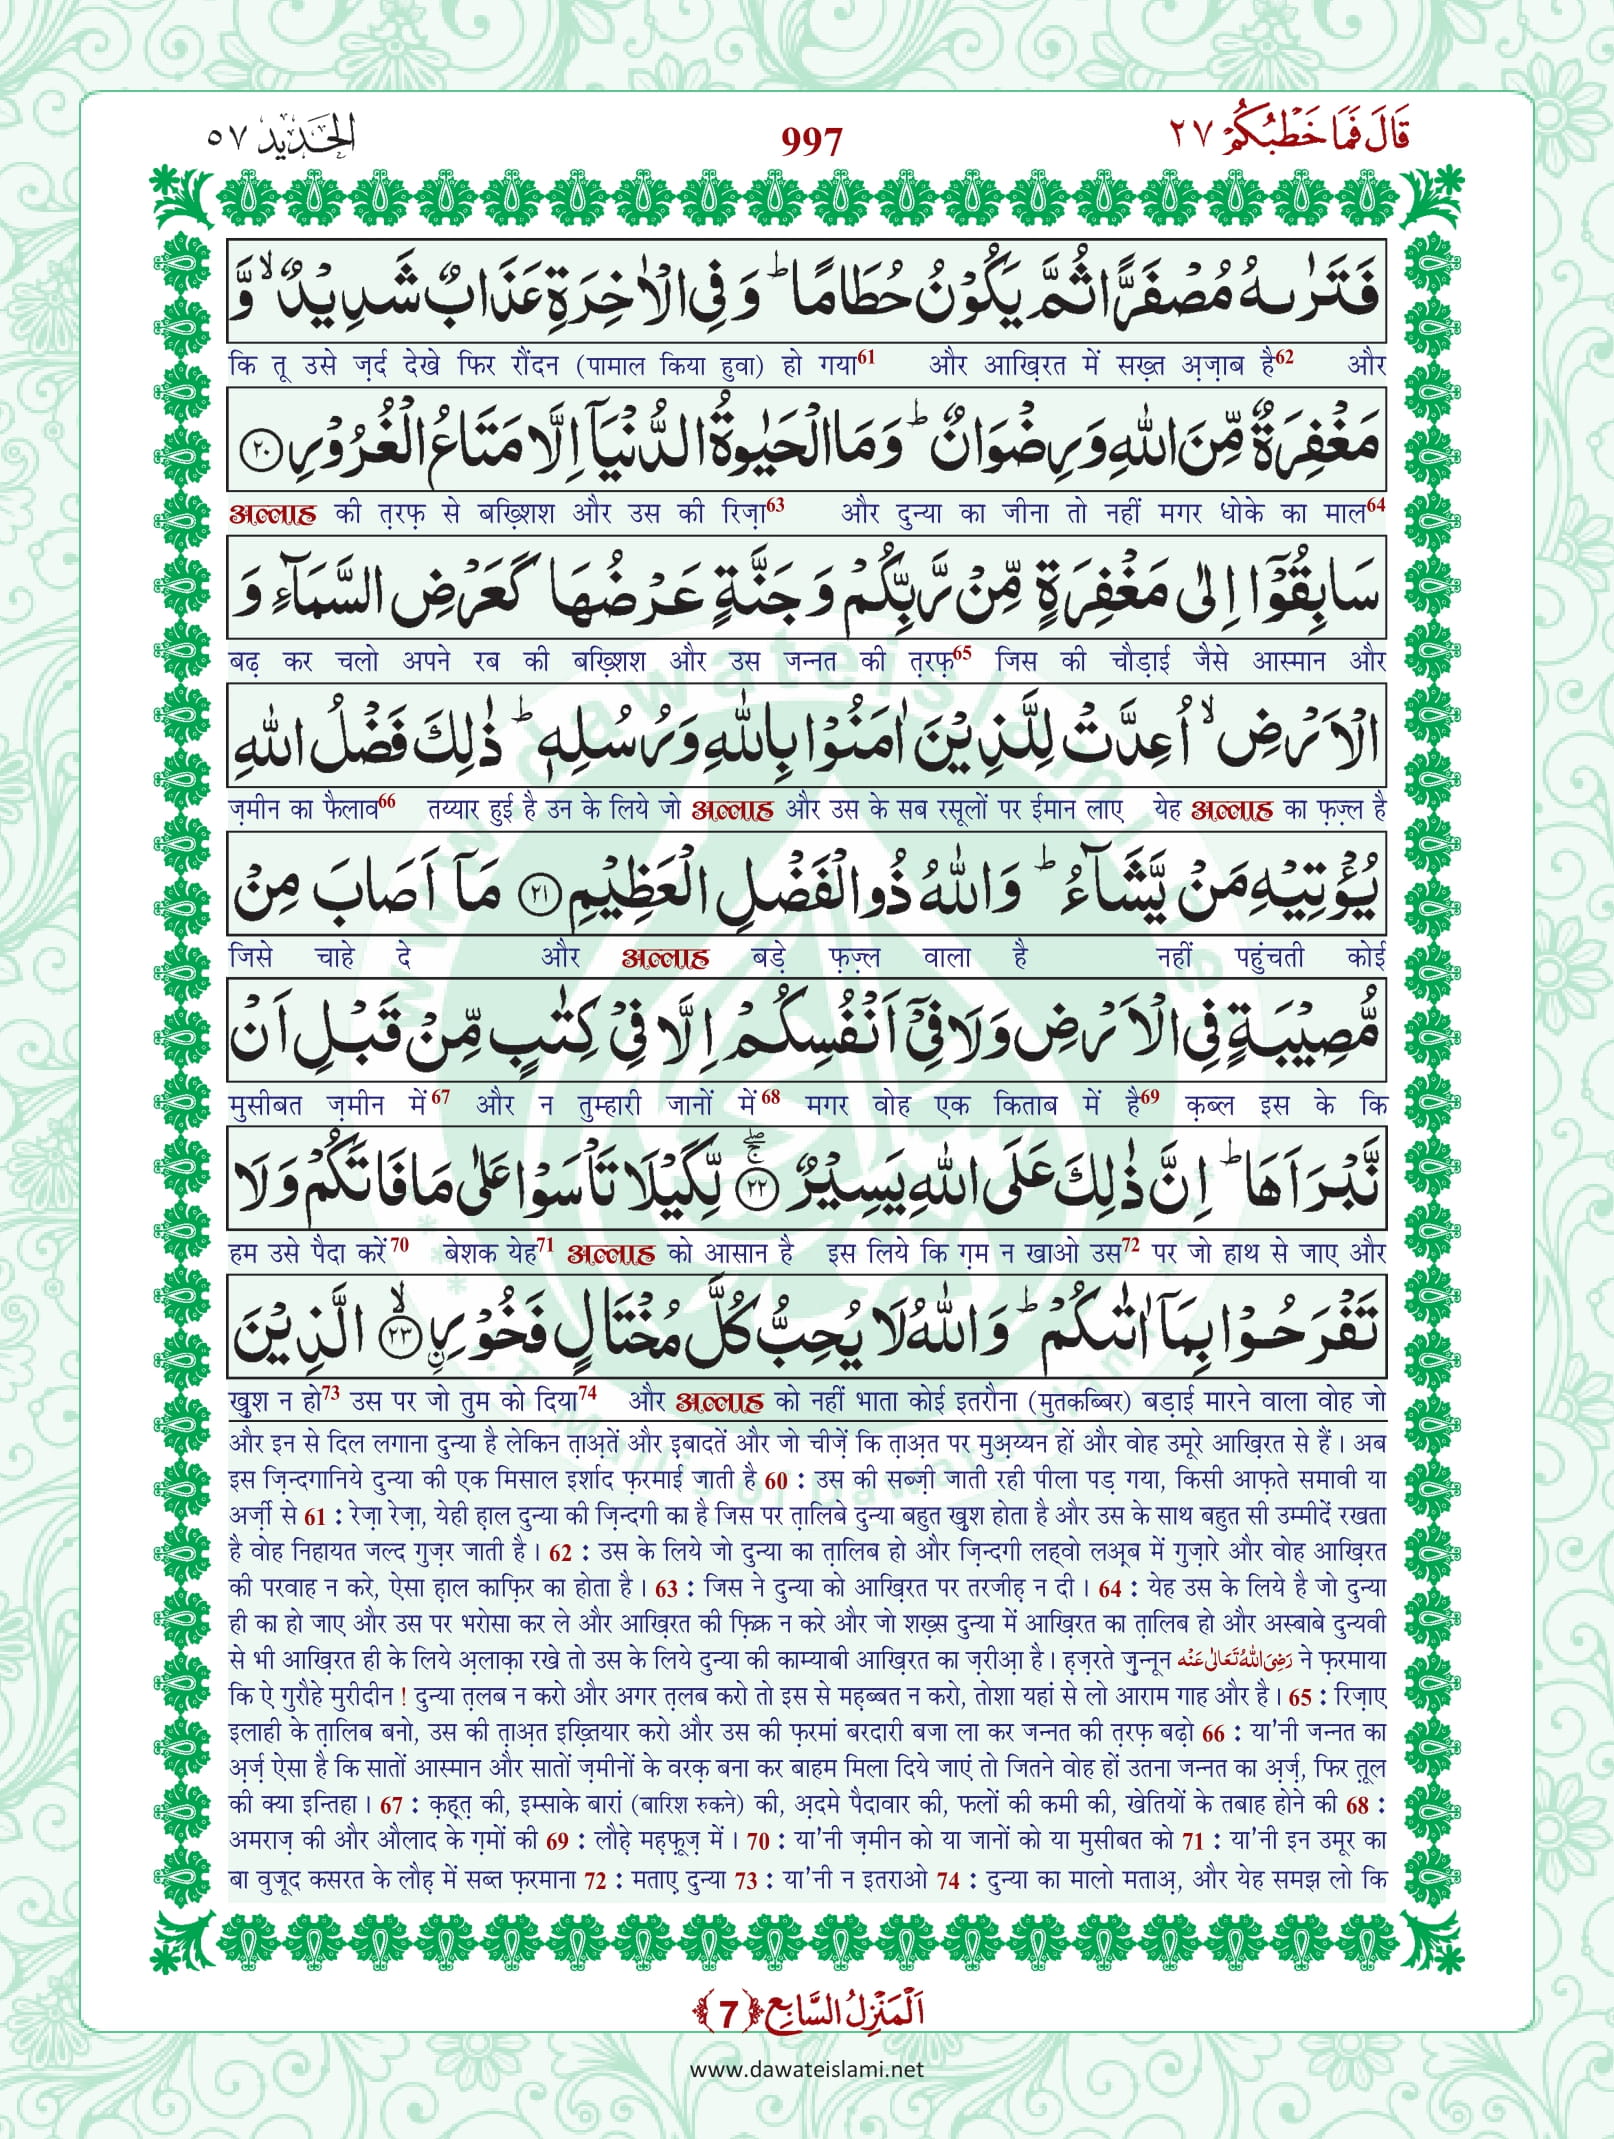 قَالَ فَمَا خَطْبُكُمْ ٢٧
997
الحَدِيد ٥٧
فَتَرٰىهُ مُصْفَرًّا ثُمَّ يَكُوْنُ حُطَامًا ؕ وَ فِي الْاٰخِرَةِ عَذَابٌ شَدِيْدٌ ۙ وَّ
कि तू उसे ज़र्द देखे फिर रौंदन (पामाल किया हुवा) हो गया61 और आख़िरत में सख़्त अ़ज़ाब है62 और
مَغْفِرَةٌ مِّنَ اللّٰهِ وَ رِضْوَانٌ ؕ وَ مَا الْحَيٰوةُ الدُّنْيَاۤ اِلَّا مَتَاعُ الْغُرُوْرِ ﴿٢٠﴾
अल्लाह की त़रफ़ से बख़्शिश और उस की रिज़ा63 और दुन्या का जीना तो नहीं मगर धोके का माल64
سَابِقُوْۤا اِلٰى مَغْفِرَةٍ مِّنْ رَّبِّكُمْ وَ جَنَّةٍ عَرْضُهَا كَعَرْضِ السَّمَآءِ وَ
बढ़ कर चलो अपने रब की बख़्शिश और उस जन्नत की त़रफ़65 जिस की चौड़ाई जैसे आस्मान और
الْاَرْضِ ۙ اُعِدَّتْ لِلَّذِيْنَ اٰمَنُوْا بِاللّٰهِ وَ رُسُلِهٖ ؕ ذٰلِكَ فَضْلُ اللّٰهِ
ज़मीन का फैलाव66 तय्यार हुई है उन के लिये जो अल्लाह और उस के सब रसूलों पर ईमान लाए येह अल्लाह का फ़ज़्ल है
يُؤْتِيْهِ مَنْ يَّشَآءُ ؕ وَ اللّٰهُ ذُو الْفَضْلِ الْعَظِيْمِ ﴿٢١﴾ مَاۤ اَصَابَ مِنْ
जिसे चाहे दे और अल्लाह बड़े फ़ज़्ल वाला है नहीं पहुंचती कोई
مُّصِيْبَةٍ فِي الْاَرْضِ وَ لَا فِيْۤ اَنْفُسِكُمْ اِلَّا فِيْ كِتٰبٍ مِّنْ قَبْلِ اَنْ
मुसीबत ज़मीन में67 और न तुम्हारी जानों में68 मगर वोह एक किताब में है69 क़ब्ल इस के कि
نَّبْرَاَهَا ؕ اِنَّ ذٰلِكَ عَلَى اللّٰهِ يَسِيْرٌ ﴿٢٢﴾ۚۖ لِّكَيْلَا تَاْسَوْا عَلٰى مَا فَاتَكُمْ وَ لَا
हम उसे पैदा करें70 बेशक येह71 अल्लाह को आसान है इस लिये कि ग़म न खाओ उस72 पर जो हाथ से जाए और
تَفْرَحُوْا بِمَاۤ اٰتٰىكُمْ ؕ وَ اللّٰهُ لَا يُحِبُّ كُلَّ مُخْتَالٍ فَخُوْرِ ۣ ﴿٢٣﴾ۙ الَّذِيْنَ
खुश न हो73 उस पर जो तुम को दिया74 और अल्लाह को नहीं भाता कोई इतरौना (मुतकब्बिर) बड़ाई मारने वाला वोह जो
और इन से दिल लगाना दुन्या है लेकिन त़ाअ़तें और इबादतें और जो चीज़ें कि त़ाअ़त पर मुअ़य्यन हों और वोह उमूरे आख़िरत से हैं। अब
इस ज़िन्दगानिये दुन्या की एक मिसाल इर्शाद फ़रमाई जाती है 60 : उस की सब्ज़ी जाती रही पीला पड़ गया, किसी आफ़ते समावी या
अर्ज़ी से 61 : रेज़ा रेज़ा, येही ह़ाल दुन्या की ज़िन्दगी का है जिस पर त़ालिबे दुन्या बहुत खुश होता है और उस के साथ बहुत सी उम्मीदें रखता
है वोह निहायत जल्द गुज़र जाती है। 62 : उस के लिये जो दुन्या का त़ालिब हो और ज़िन्दगी लह्वो लअ़ूब में गुज़ारे और वोह आख़िरत
की परवाह न करे, ऐसा ह़ाल काफ़िर का होता है। 63 : जिस ने दुन्या को आख़िरत पर तरजीह़ न दी। 64 : येह उस के लिये है जो दुन्या
ही का हो जाए और उस पर भरोसा कर ले और आख़िरत की फ़िक्र न करे और जो शख़्स दुन्या में आख़िरत का त़ालिब हो और अस्बाबे दुन्यवी
से भी आख़िरत ही के लिये अ़लाक़ा रखे तो उस के लिये दुन्या की काम्याबी आख़िरत का ज़रीआ़ है। ह़ज़रते ज़ुन्नून رَضِیَ اللّٰہُ تَعَالٰی عَنْہ ने फ़रमाया
कि ऐ गुरौहे मुरीदीन ! दुन्या त़लब न करो और अगर त़लब करो तो इस से मह़ब्बत न करो, तोशा यहां से लो आराम गाह और है। 65 : रिज़ाए
इलाही के त़ालिब बनो, उस की त़ाअ़त इख़्तियार करो और उस की फ़रमां बरदारी बजा ला कर जन्नत की त़रफ़ बढ़ो 66 : या'नी जन्नत का
अ़र्ज़ ऐसा है कि सातों आस्मान और सातों ज़मीनों के वरक़ बना कर बाहम मिला दिये जाएं तो जितने वोह हों उतना जन्नत का अ़र्ज़, फिर त़ूल
की क्या इन्तिहा। 67 : क़ह़त़ की, इम्साके बारां (बारिश रुकने) की, अ़दमे पैदावार की, फलों की कमी की, खेतियों के तबाह होने की 68 :
अमराज़ की और औलाद के ग़मों की 69 : लौह़े मह़फ़ूज़ में। 70 : या'नी ज़मीन को या जानों को या मुसीबत को 71 : या'नी इन उमूर का
बा वुजूद कसरत के लौह़ में सब्त फ़रमाना 72 : मताए दुन्या 73 : या'नी न इतराओ 74 : दुन्या का मालो मताअ़, और येह समझ लो कि
اَلْمَنْزِلُ السَّابِع ﴿7﴾
www.dawateislami.net